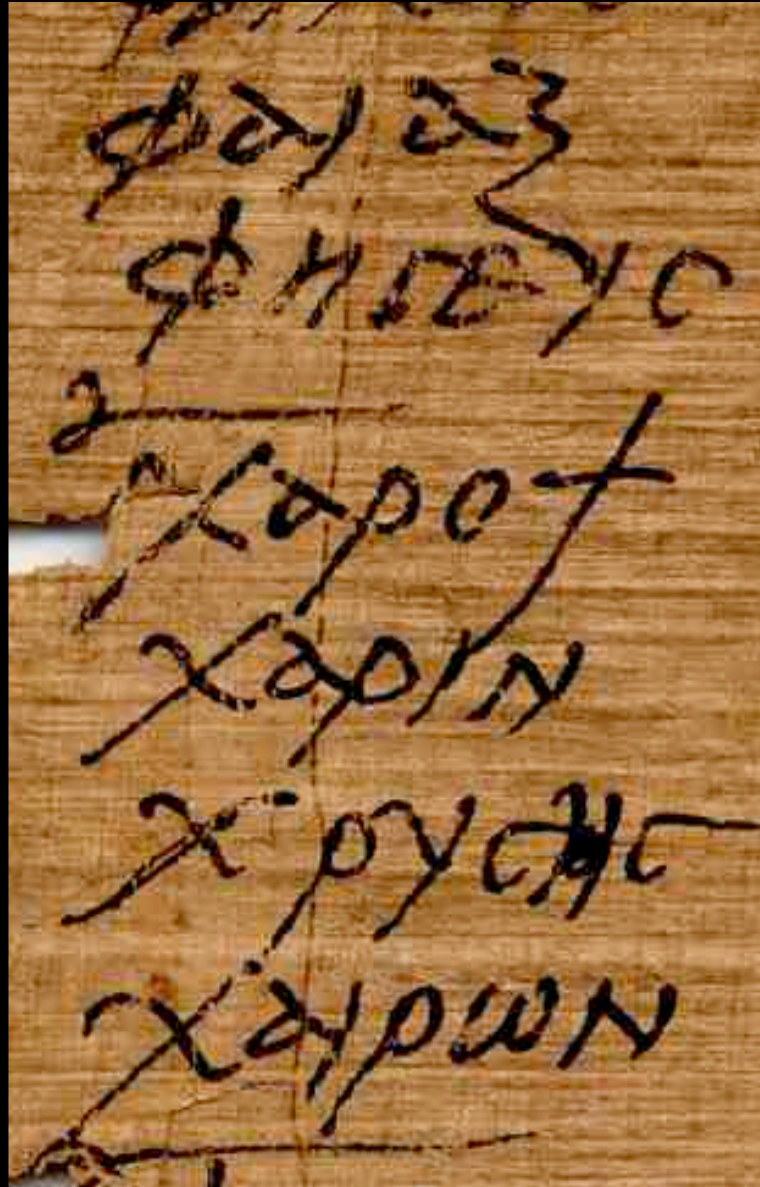 φαιαξ
φηγευς
χαροψ
χαριν
χρυσης
χαιρων